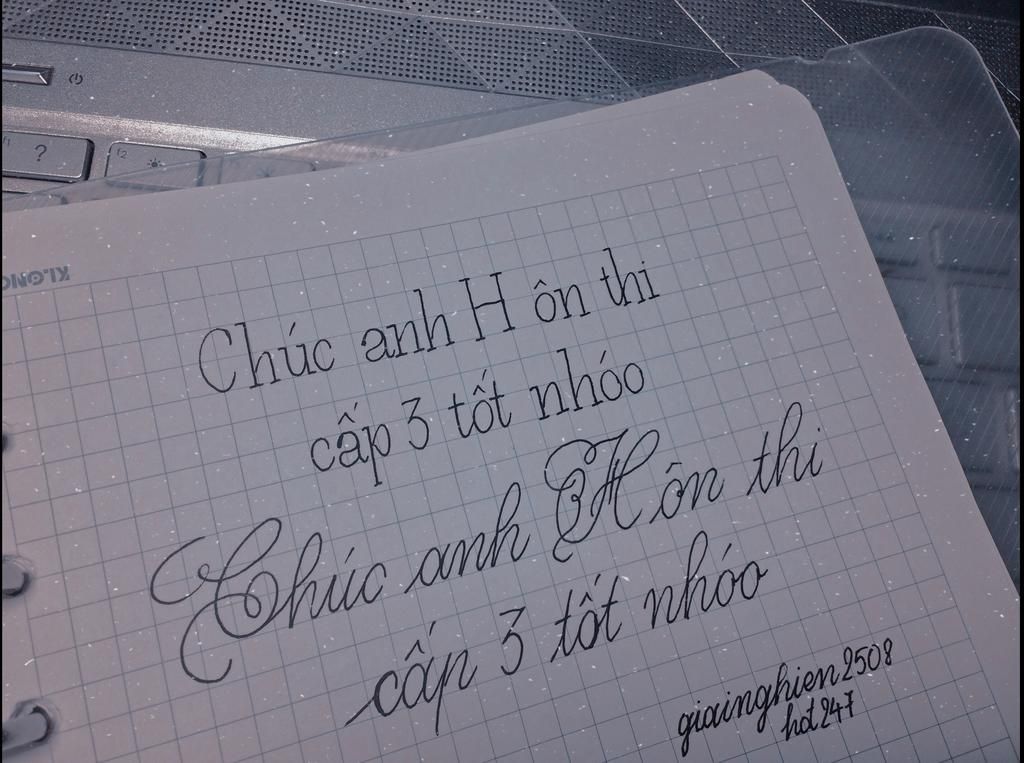 ?
F2
KLONG
Chúc anh H ôn thi
cấp 3 tốt nhóo
Chúc anh H ôn thi
cấp 3 tốt nhóo
giainghien2508
hot247